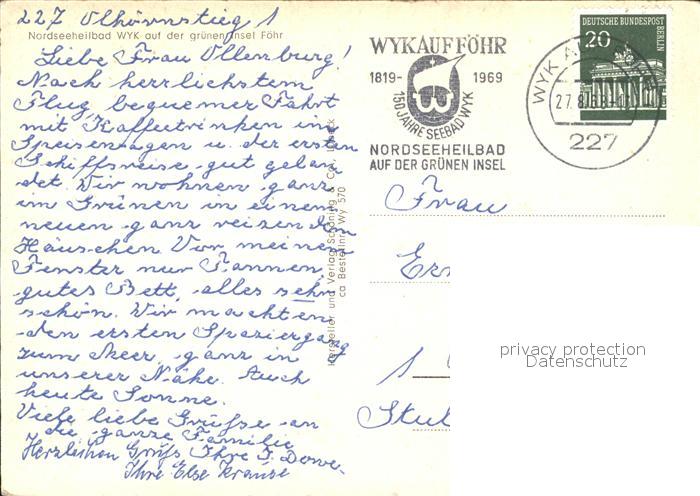 227 Olhörnstieg 1
Nordseeheilbad WYK auf der grünen Insel Föhr
Liebe Frau Ollenburg!
Nach herrlichstem
Flug bequemer Fahrt
mit Kaffeetrinken im
Speisewagen u. der ersten
Schiffsreise gut gelan
det. Wir wohnen ganz
im Grünen in einem
neuen ganz reizenden
Häuschen Vor meinem
Fenster nur Tannen,
gutes Bett, alles sehr
schön. Wir machten
den ersten Spaziergang
zum Meer, ganz in
unserer Nähe. Auch
heute Sonne.
Viele liebe Grüße an
die ganze Familie
Herzlichen Gruß Ihre
Ihre Else Krause
Hersteller und Verlag Schöning & Co.
Bestellnr. Wy 570
WYK AUF FÖHR
1819- 1969
150 JAHRE SEEBAD WYK
NORDSEEHEILBAD
AUF DER GRÜNEN INSEL
DEUTSCHE BUNDESPOST
BERLIN
20
WYK
27.8.68
227
Frau
1
privacy protection
Datenschutz